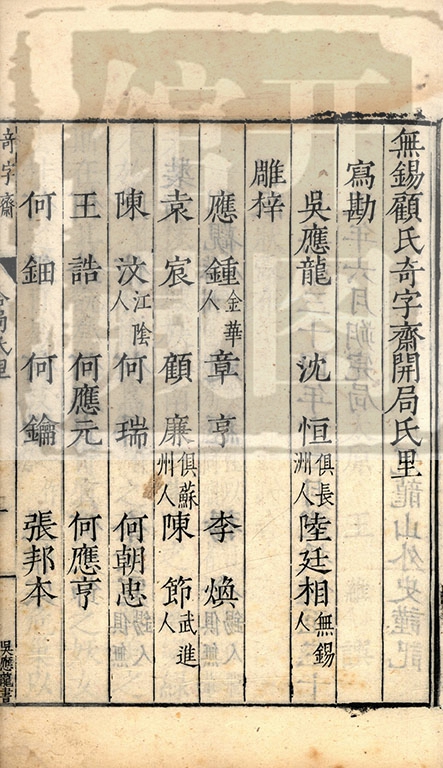 無錫顧氏奇字齋開局氏里
寫勘
吳應龍 沈恒俱長洲人 陸廷相無錫人
雕梓
應鍾金華人 章亨 李煥
袁宸 顧廉俱蘇州人 陳節武進人
陳汶江陰人 何瑞 何朝忠
王誥 何應元 何應亨
何鈿 何鑰 張邦本
奇字齋
氏里
吳應龍書